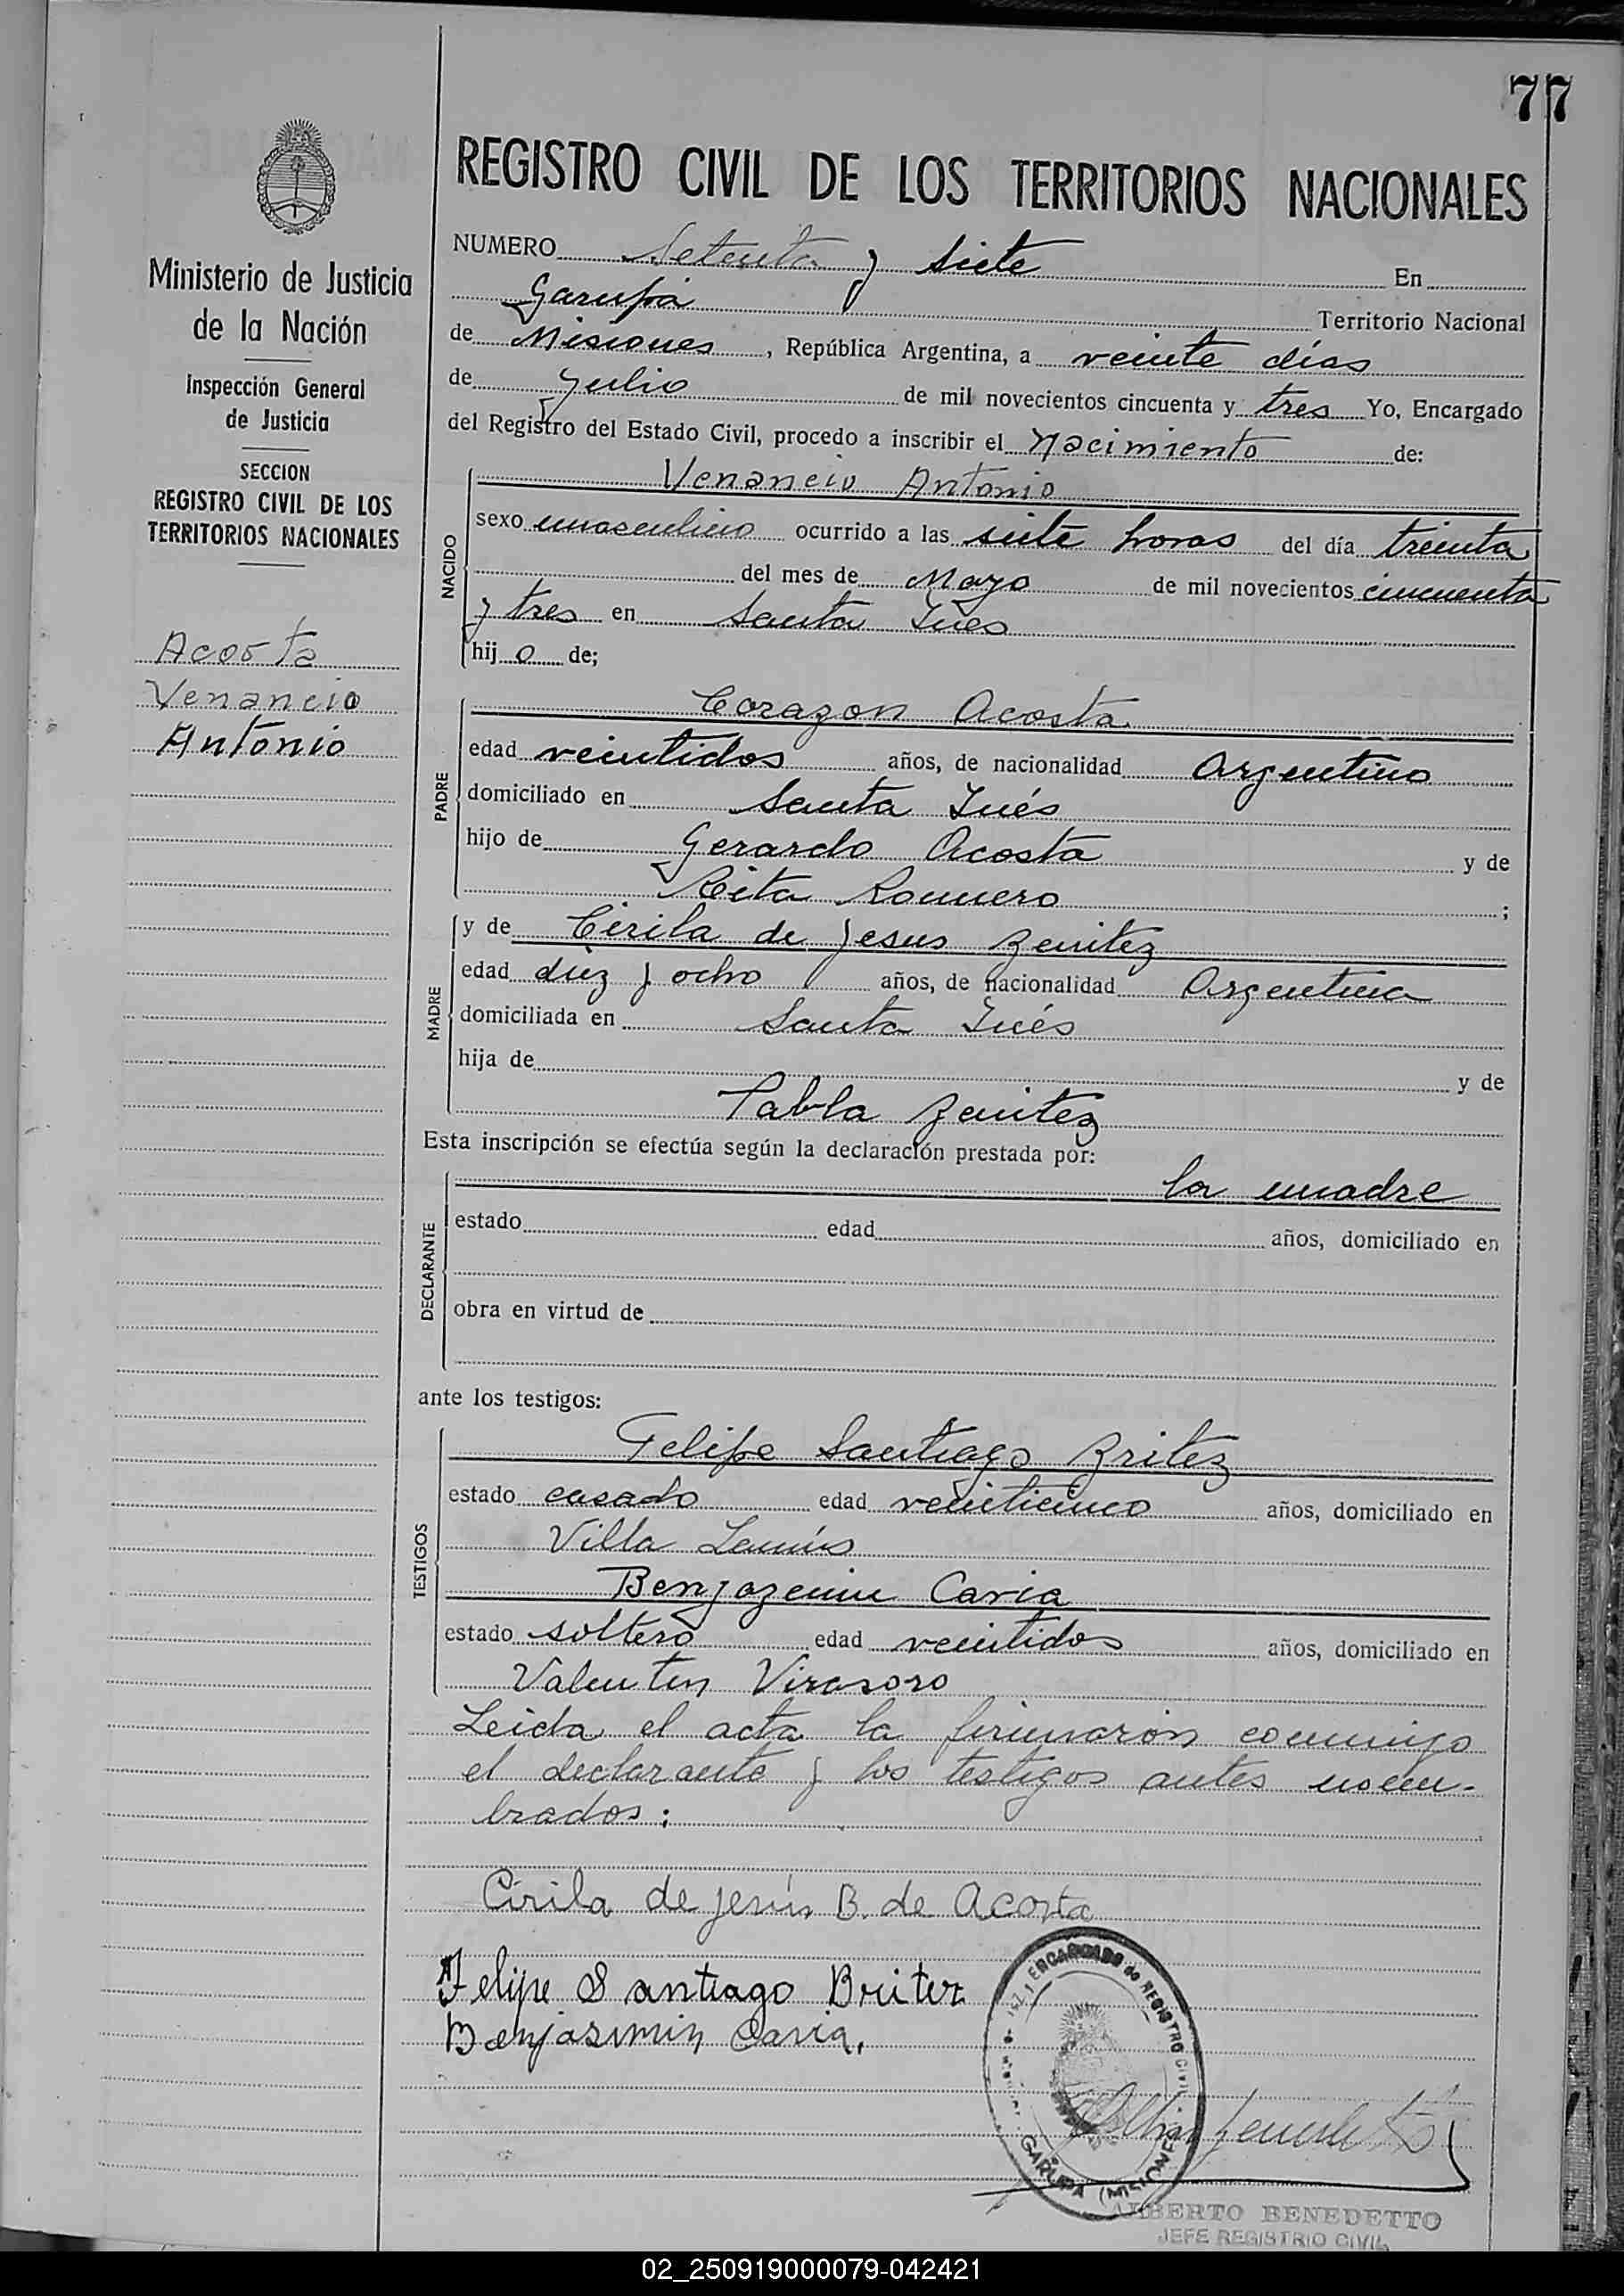 77
REGISTRO CIVIL DE LOS TERRITORIOS NACIONALES
Ministerio de Justicia
de la Nación
Inspección General
de Justicia
SECCION
REGISTRO CIVIL DE LOS
TERRITORIOS NACIONALES
Acosta
Venancio
Antonio
NUMERO Setenta y siete En
Garupá Territorio Nacional
de Misiones, República Argentina, a veinte días
de Julio de mil novecientos cincuenta y tres Yo, Encargado
del Registro del Estado Civil, procedo a inscribir el Nacimiento de:
NACIDO
Venancio Antonio
sexo masculino ocurrido a las siete horas del día treinta
del mes de Mayo de mil novecientos cincuenta
y tres en Santa Inés
hij o de;
PADRE
Corazon Acosta
edad veintidos años, de nacionalidad Argentino
domiciliado en Santa Inés
hijo de Gerardo Acosta y de
Rita Romero ;
MADRE
y de Cirila de Jesus Benitez
edad diez y ocho años, de nacionalidad Argentina
domiciliada en Santa Inés
hija de y de
Pabla Benitez
Esta inscripción se efectúa según la declaración prestada por:
DECLARANTE
la madre
estado edad años, domiciliado en
obra en virtud de
ante los testigos:
TESTIGOS
Felipe Santiago Britez
estado casado edad veinticinco años, domiciliado en
Villa Lanús
Benjazemin Caria
estado soltero edad veintidos años, domiciliado en
Valentin Virasoro
Leida el acta la firmaron conmigo
el declarante y los testigos antes nom-
brados:
Cirila de Jesús B. de Acosta
Felipe Santiago Britez
Benjasimin Caria.
ENCARGADO de REGISTRO CIVIL
GARUPA (MISIONES)
ALBERTO BENEDETTO
JEFE REGISTRIO CIVIL
02_250919000079-042421